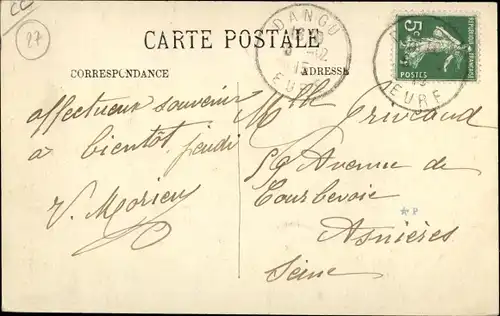 CC
27
CARTE POSTALE
CORRESPONDANCE
ADRESSE
DANGU
EURE
5c
REPUBLIQUE FRANÇAISE
POSTES
EURE
affectueux souvenir
a bientôt jeudi
V. Morieu
Mlle Griveaud
56 Avenue de
Courbevoie
Asnières
Seine